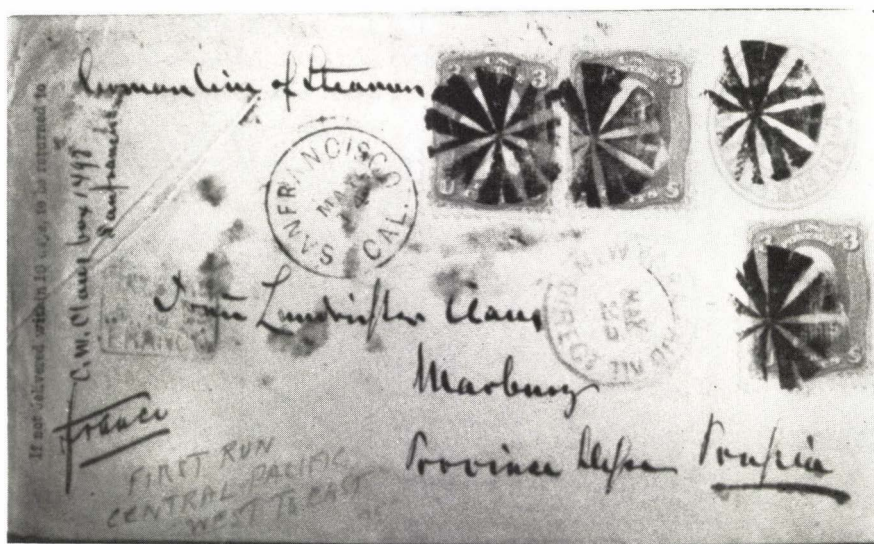 If not delivered within 10 days, to be returned to
C. W. Claus box 1498
Sanfrancisco
German Line of Steamers
SAN FRANCISCO CAL.
MAY
3
3
3
U S
S
S
PAID ALL DIRECT
MAY
FRANCO
Claus
Marburg
Province Hessen Prussia
Franco
FIRST RUN
CENTRAL PACIFIC
WEST TO EAST